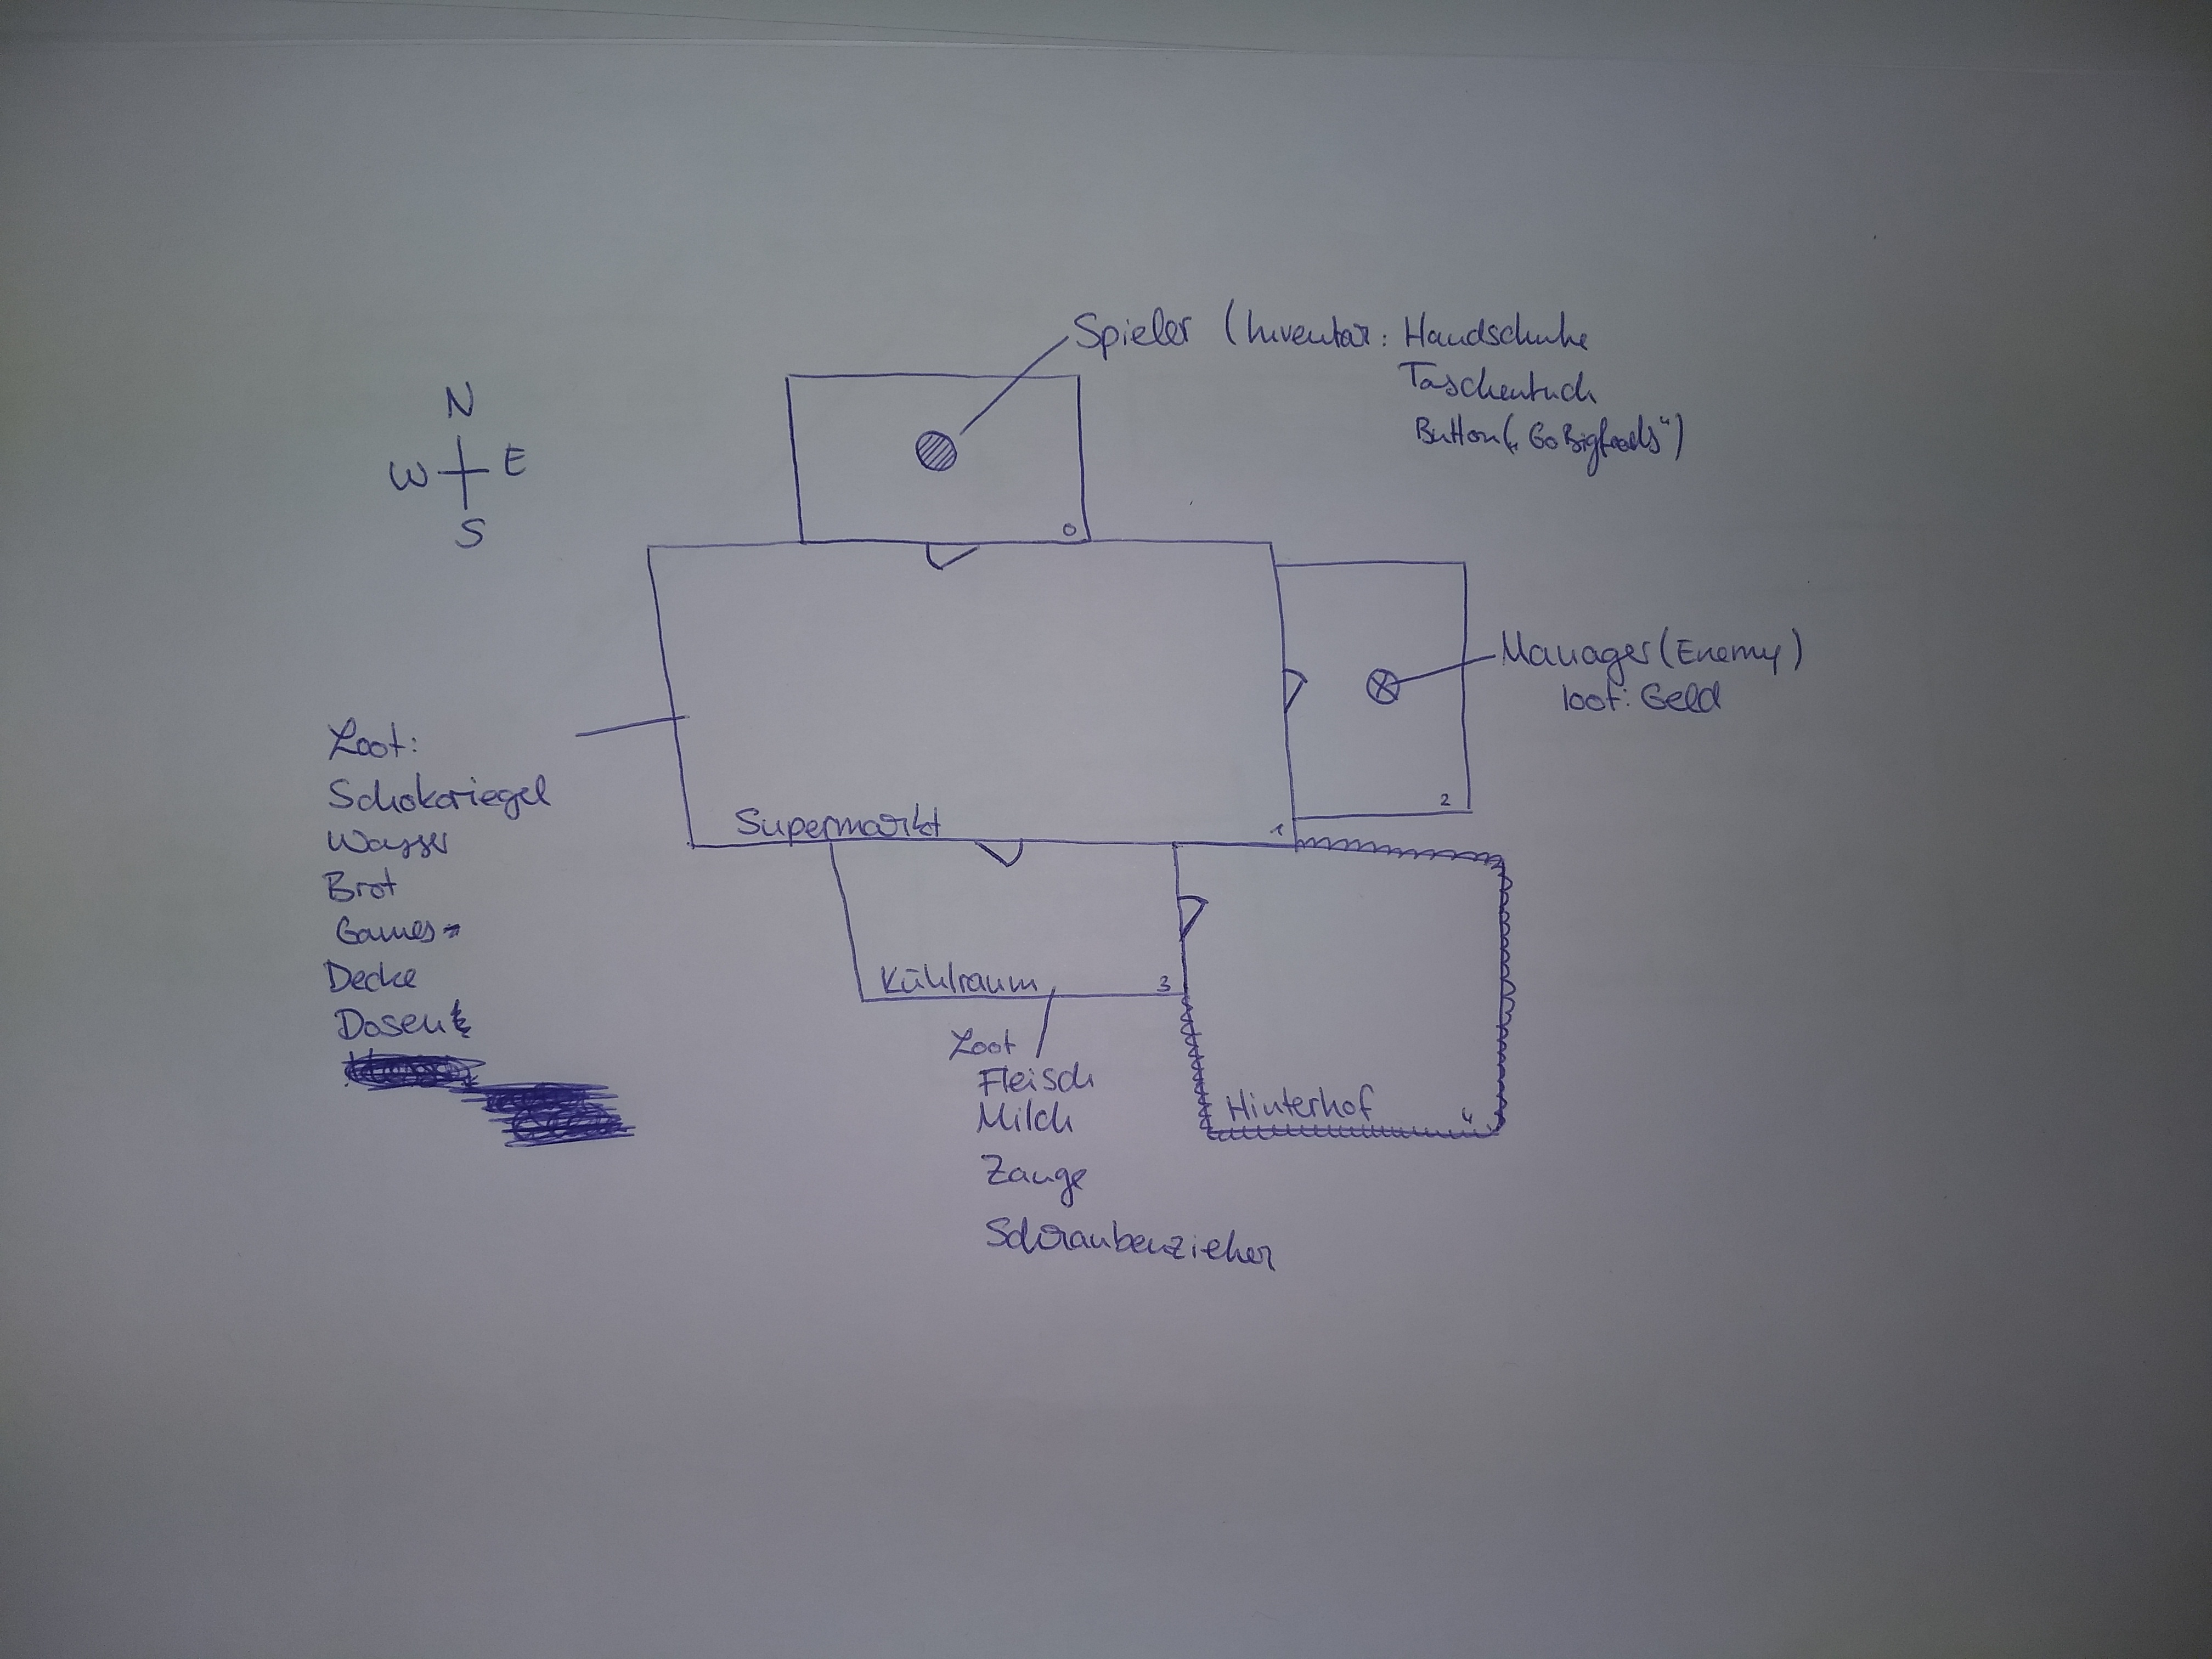 Spieler (Inventar: Handschuhe
Taschentuch
Button („GoBigfoods“)
N
W E
S
0
Manager (Enemy)
loot: Geld
2
Loot:
Schokoriegel
Wasser
Brot
Games
Decke
Dosen
Supermarkt
1
Kühlraum
3
Loot
Fleisch
Milch
Zange
Schraubenzieher
Hinterhof
4